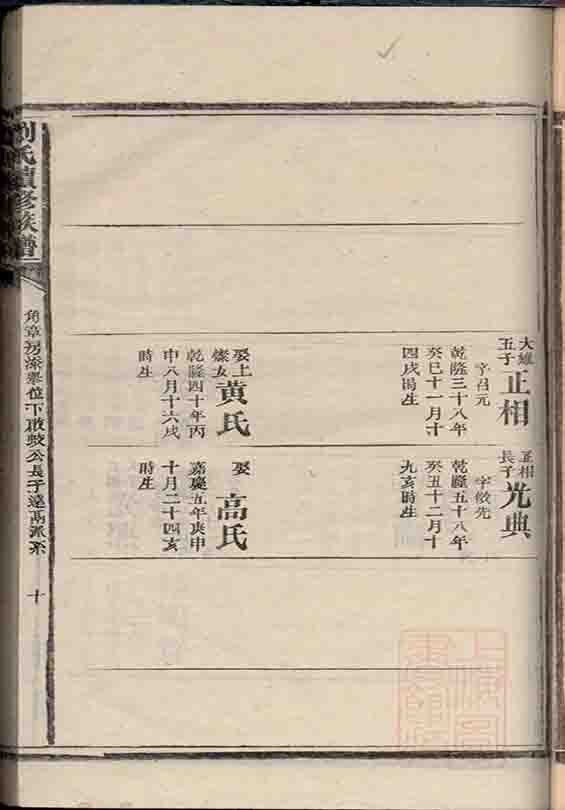 大雄
五子
正相
字召元
乾隆三十八年
癸巳十一月十
四戌時生
娶上
燦女
黄氏
乾隆四十年丙
申八月十六戌
時生
正相
長子
光典
字徽先
乾隆五十八年
癸丑十二月十
九亥時生
娶
高氏
嘉慶五年庚申
十月二十四亥
時生
劉氏續修族譜
角章房派
位下敢
公長子達
派系
十
上
圖
書館